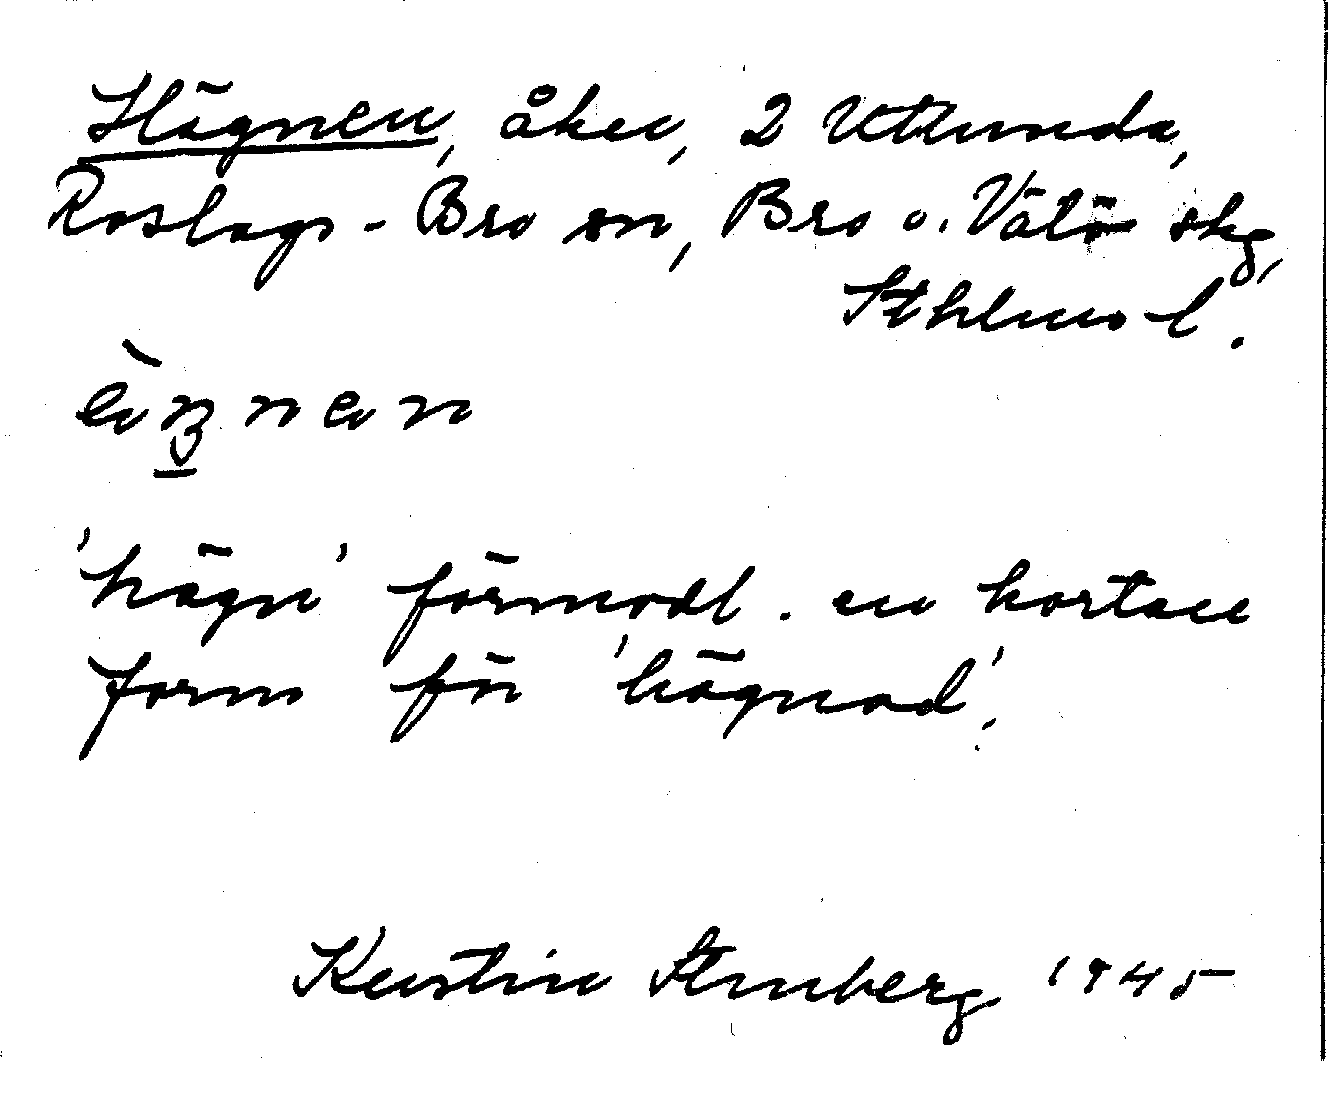 Hägnen, åker, 2 Utlunda,
Roslags-Bro sn, Bro o. Vätö skg,
Sthlms l.
'hägn' förmodl. en kortare
form för 'högnad'.
Kerstin Stenberg 1945